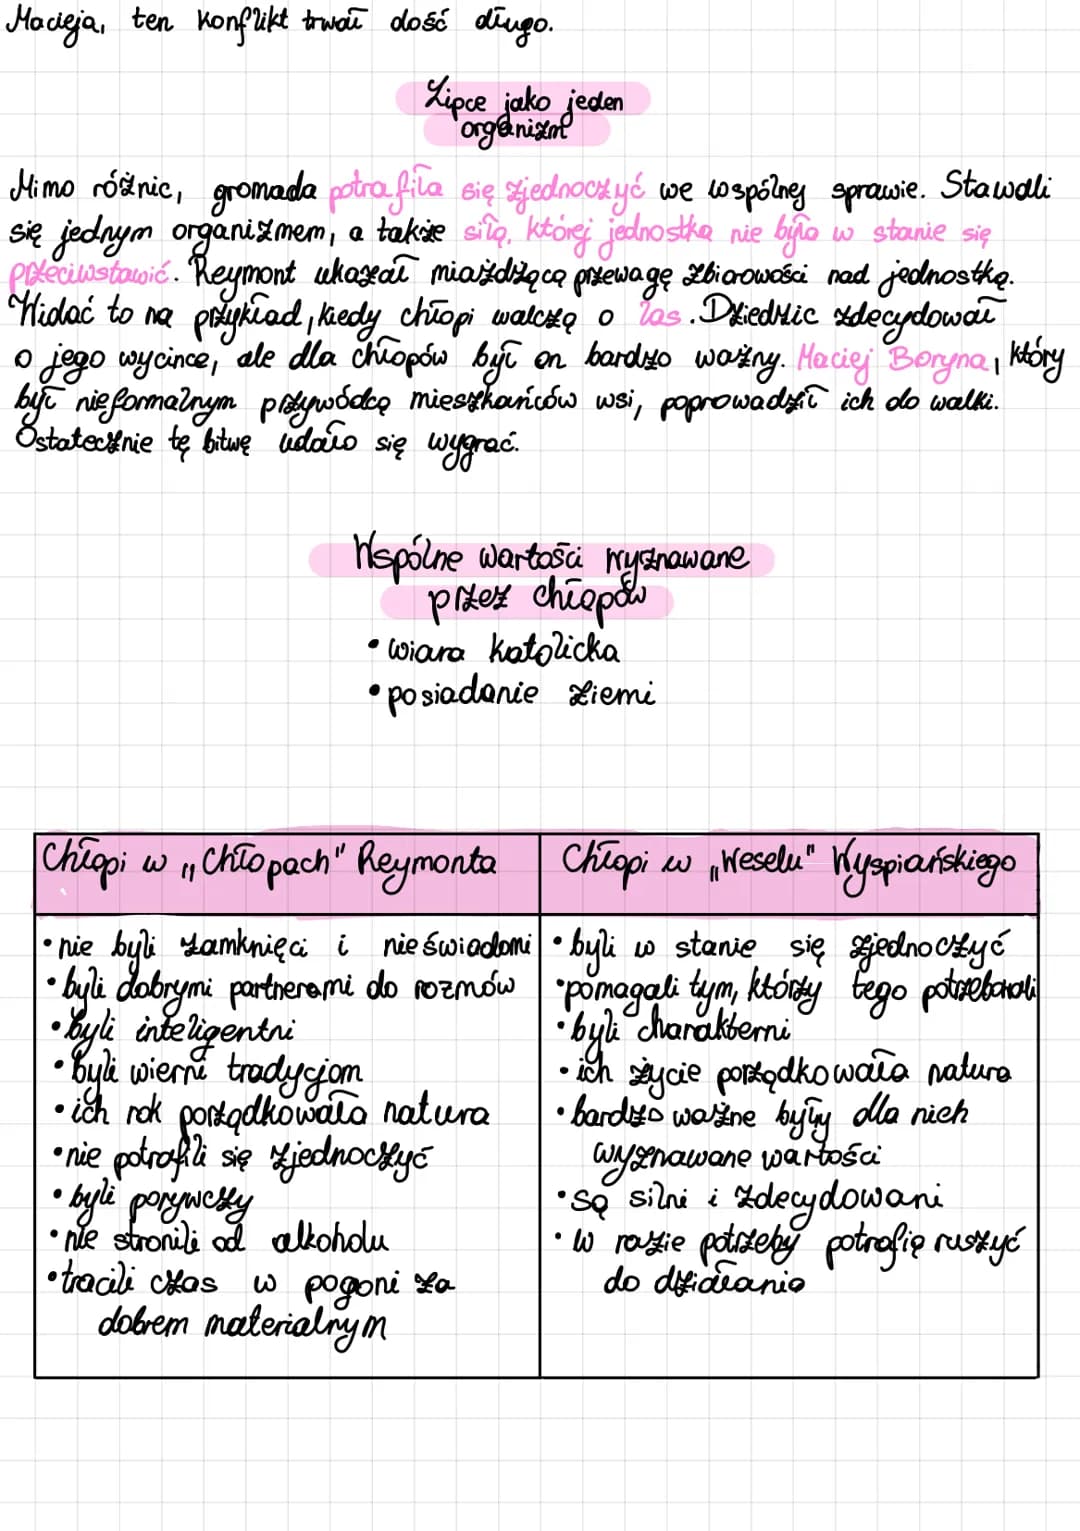 Macieja, ten konflikt trwał dość długo.
Lipce jako jeden
organizm
Mimo różnic, gromada potrafiła się zjednoczyć we wspólnej sprawie. Stawali
się jednym organizmem, a także siłą, której jednostka nie była w stanie się
przeciwstawić. Reymont ukazał miażdżącą przewagę zbiorowości nad jednostką.
Widać to na przykład, kiedy chłopi walczą o las. Dziedzic zdecydował
o jego wycince, ale dla chłopów był on bardzo ważny. Maciej Boryna, który
był nieformalnym przywódcą mieszkańców wsi, poprowadził ich do walki.
Ostatecznie tę bitwę udało się wygrać.
Wspólne wartości wyznawane
przez chłopów
• wiara katolicka
• posiadanie ziemi
Chłopi w „Chłopach" Reymonta
• nie byli zamknięci i nieświadomi
• byli dobrymi partnerami do rozmów
• byli inteligentni
• byli wierni tradycjom
• ich rok porządkowała natura
• nie potrafili się zjednoczyć
• byli porywczy
• nie stronili od alkoholu
• tracili czas w pogoni za
dobrem materialnym
Chłopi w „Weselu" Wyspiańskiego
• byli w stanie się zjednoczyć
• pomagali tym, którzy tego potrzebowali
• byli charakterni
• ich życie porządkowała natura
• bardzo ważne były dla nich
wyznawane wartości
• są silni i zdecydowani
• w razie potrzeby potrafią ruszyć
do działania